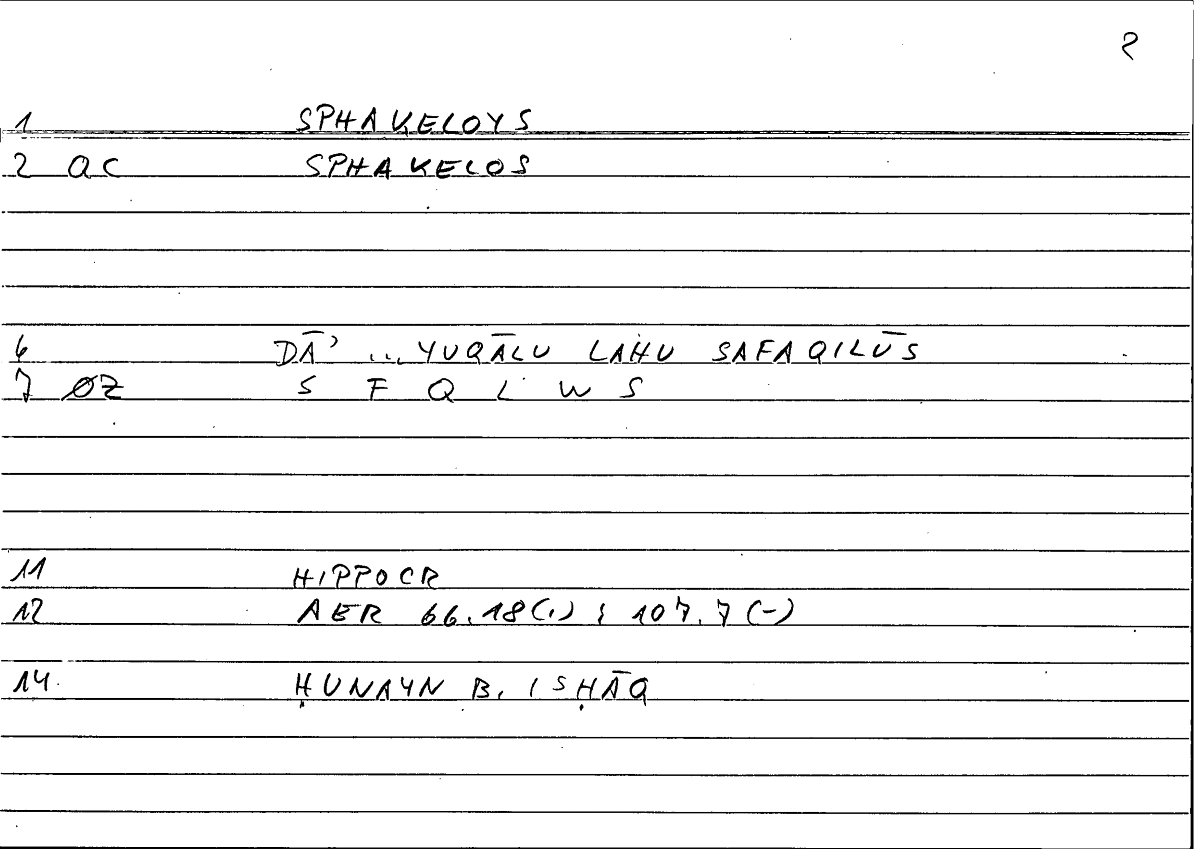 2
1 SPHAKELOYS
2 QC SPHAKELOS
6 DĀʾ ... YUQĀLU LAHU SAFAQILŪS
7 ØZ S F Q L W S
11 HIPPOCR
12 AER 66.18(.) ; 107.7 (-)
14 ḤUNAYN B. ISḤĀQ